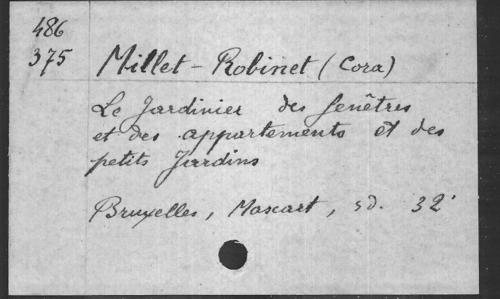 486
375
Millet-Robinet (Cora)
Le Jardinier des fenêtres
et des appartements et des
petits Jardins
Bruxelles, Mascart, sd. 32°